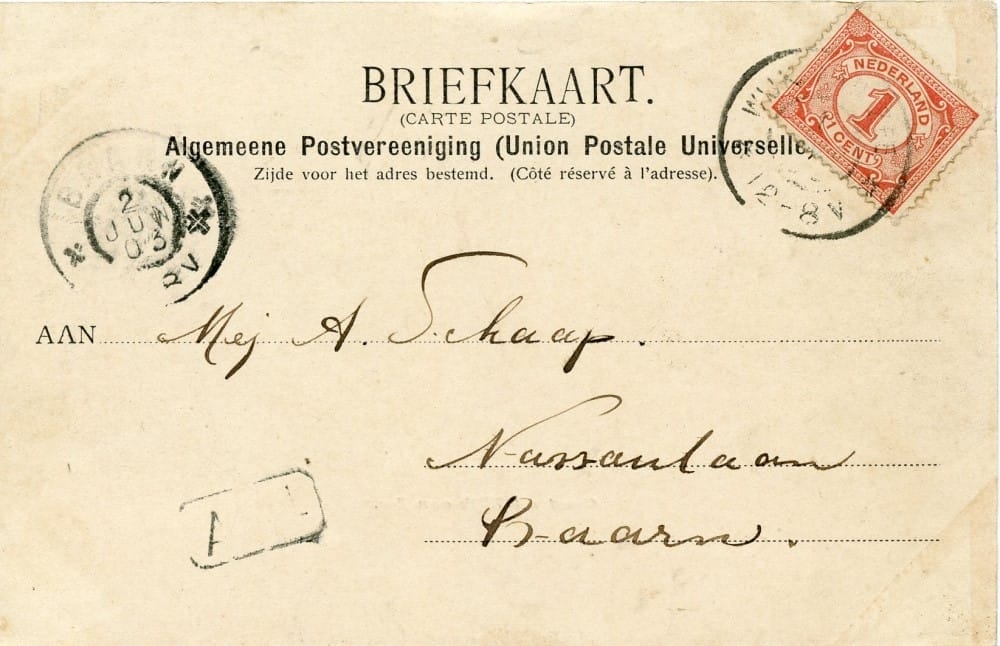 BRIEFKAART.
(CARTE POSTALE)
Algemeene Postvereeniging (Union Postale Universelle)
Zijde voor het adres bestemd. (Côté réservé à l'adresse).
NEDERLAND
1
1 CENT
8
2
JUN
03
AAN Mej A. Schaap.
Nassaulaan
Baarn.
1